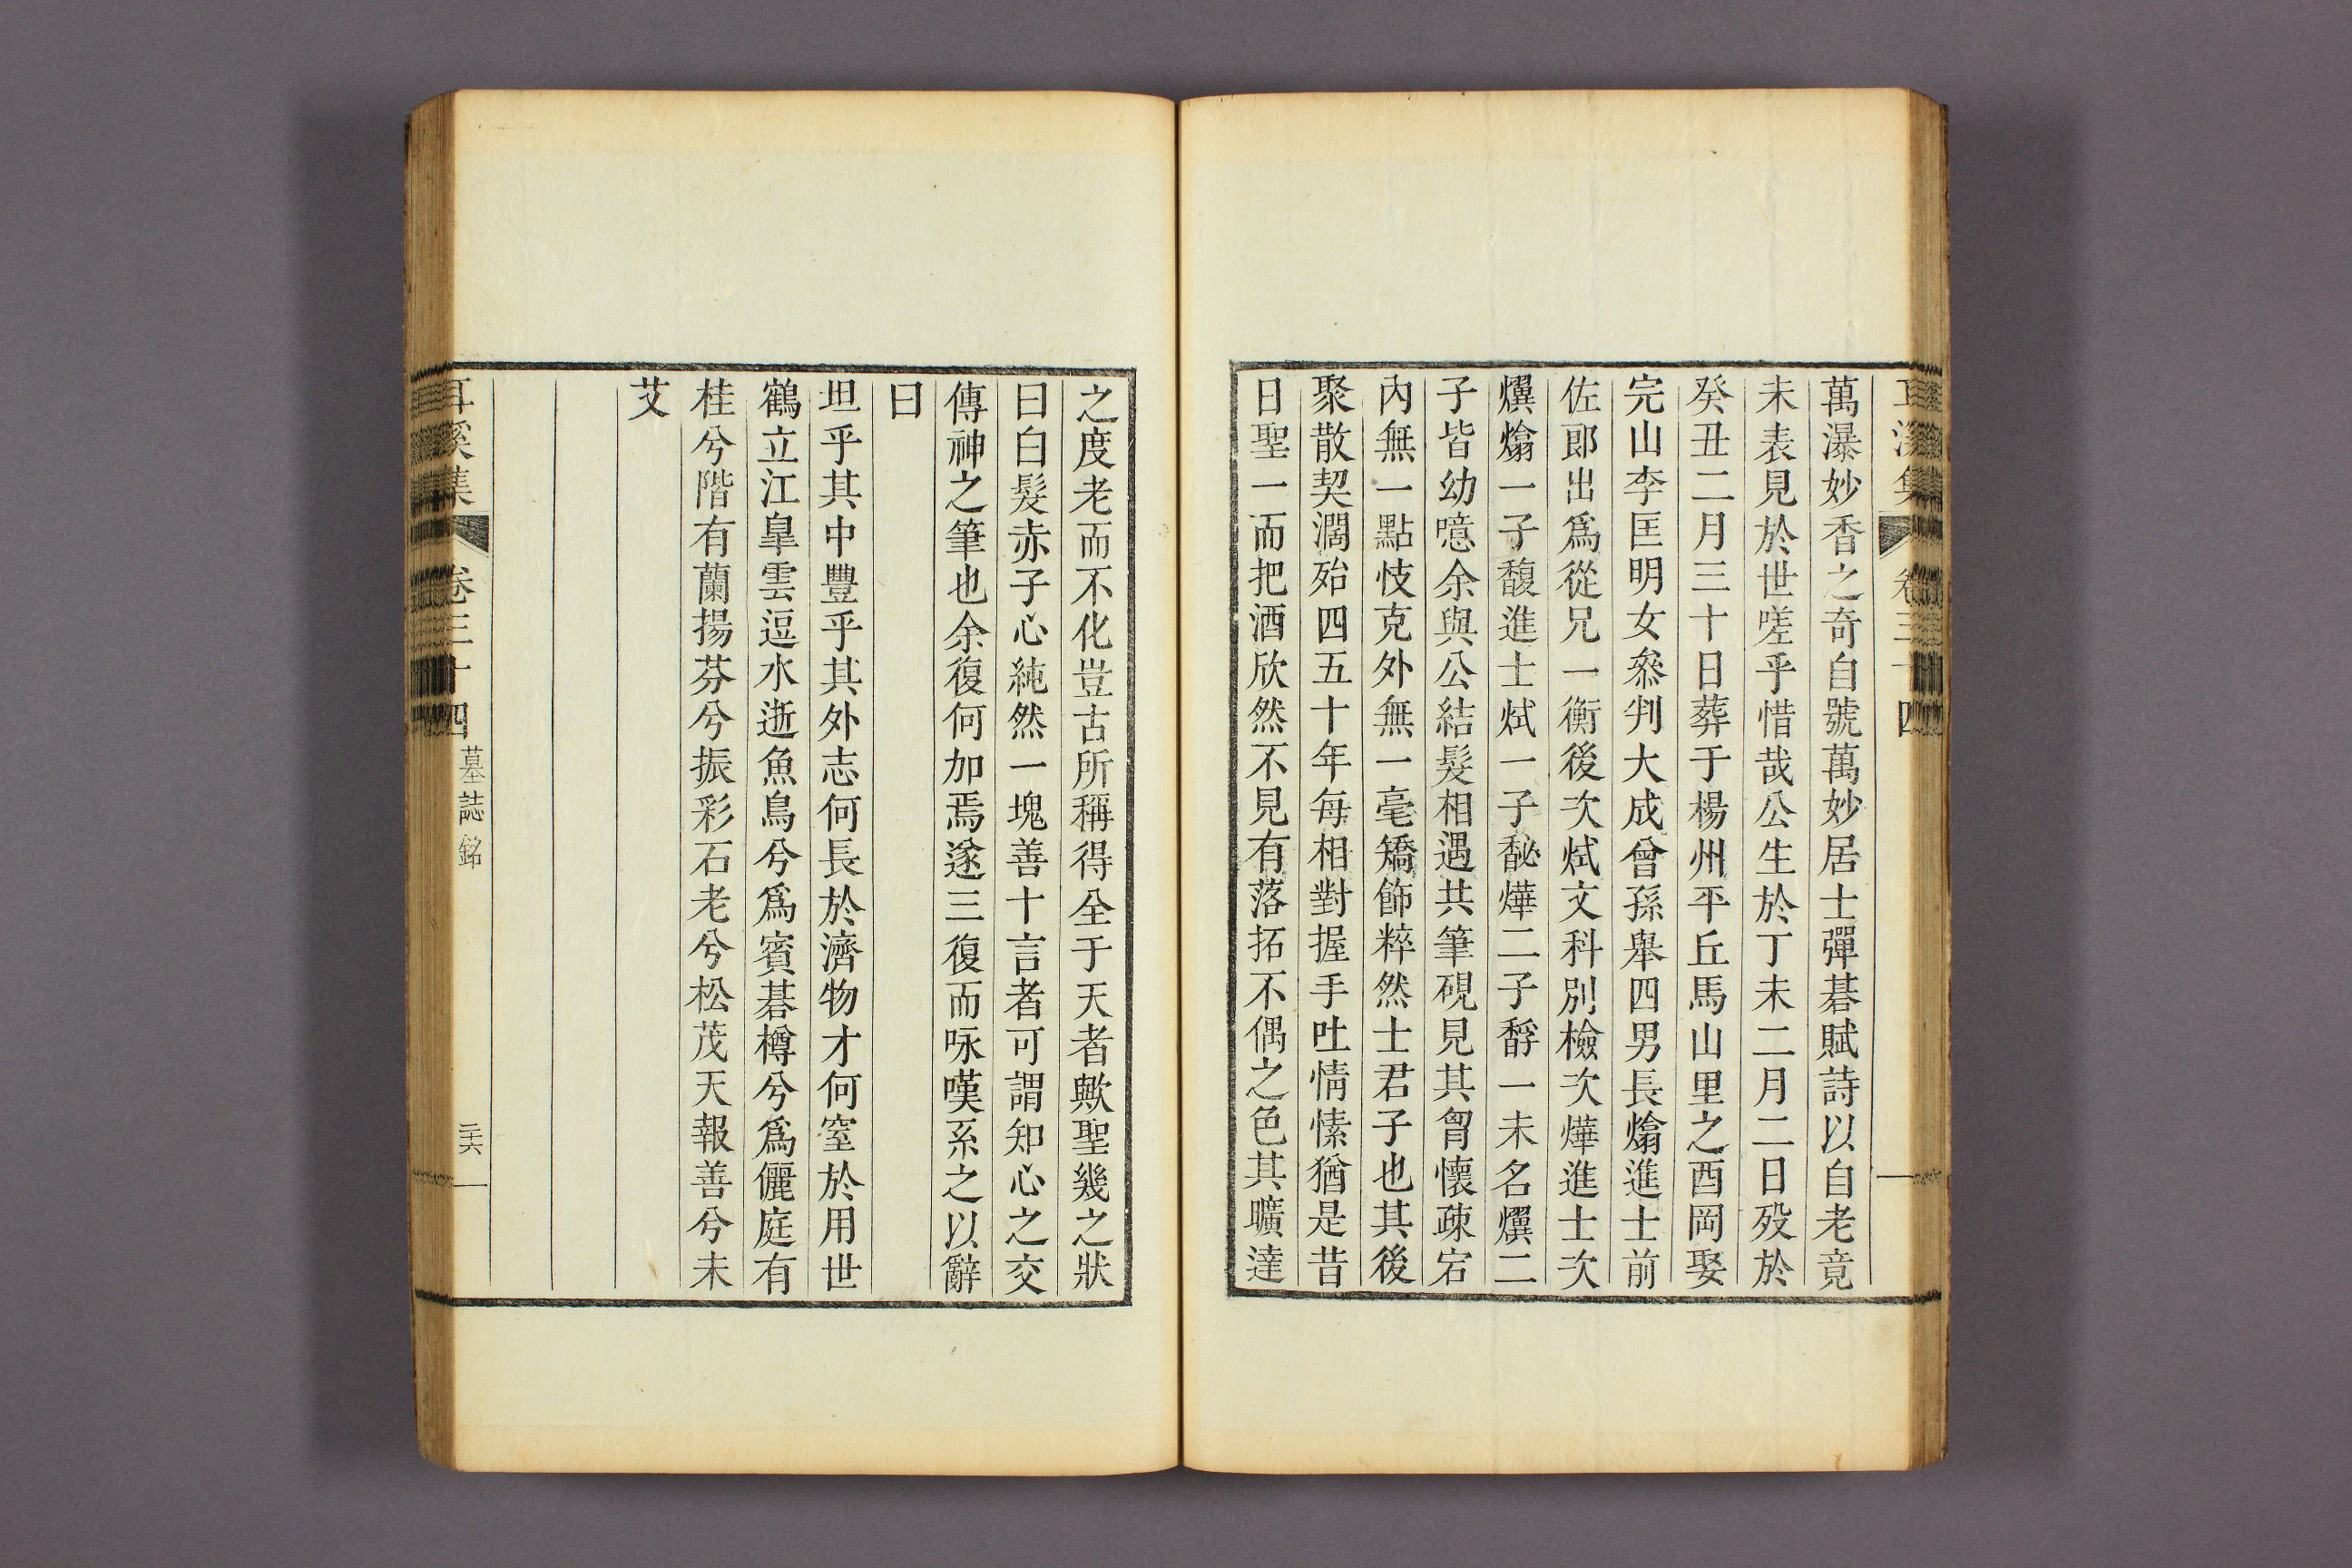 萬瀑妙香之奇自號萬妙居士彈碁賦詩以自老竟
未表見於世嗟乎惜哉公生於丁未二月二日歿於
癸丑二月三十日葬于楊州平丘馬山里之酉岡娶
完山李匡明女叅判大成曾孫舉四男長熻進士前
佐郎出爲從兄一衡後次烒文科別檢次燁進士次
熼熻一子馥進士烒一子馝燁二子馟一未名熼二
子皆幼噫余與公結髮相遇共筆硯見其胷懷疎宕
內無一點忮克外無一毫矯飾粹然士君子也其後
聚散契濶殆四五十年每相對握手吐情愫猶是昔
日聖一而把酒欣然不見有落拓不偶之色其曠達
之度老而不化豈古所稱得全于天者歟聖幾之狀
曰白髮赤子心純然一塊善十言者可謂知心之交
傳神之筆也余復何加焉遂三復而咏嘆系之以辭
曰
坦乎其中豐乎其外志何長於濟物才何窒於用世
鶴立江臯雲逗水逝魚鳥兮爲賓碁樽兮爲儷庭有
桂兮階有蘭揚芬兮振彩石老兮松茂天報善兮未
艾
耳溪集 卷三十四 墓誌銘 二十六